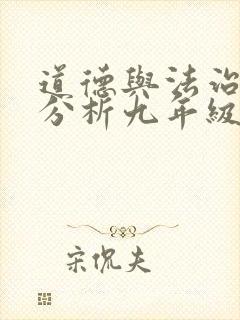 道德與法治
分析九年級
宋侃夫